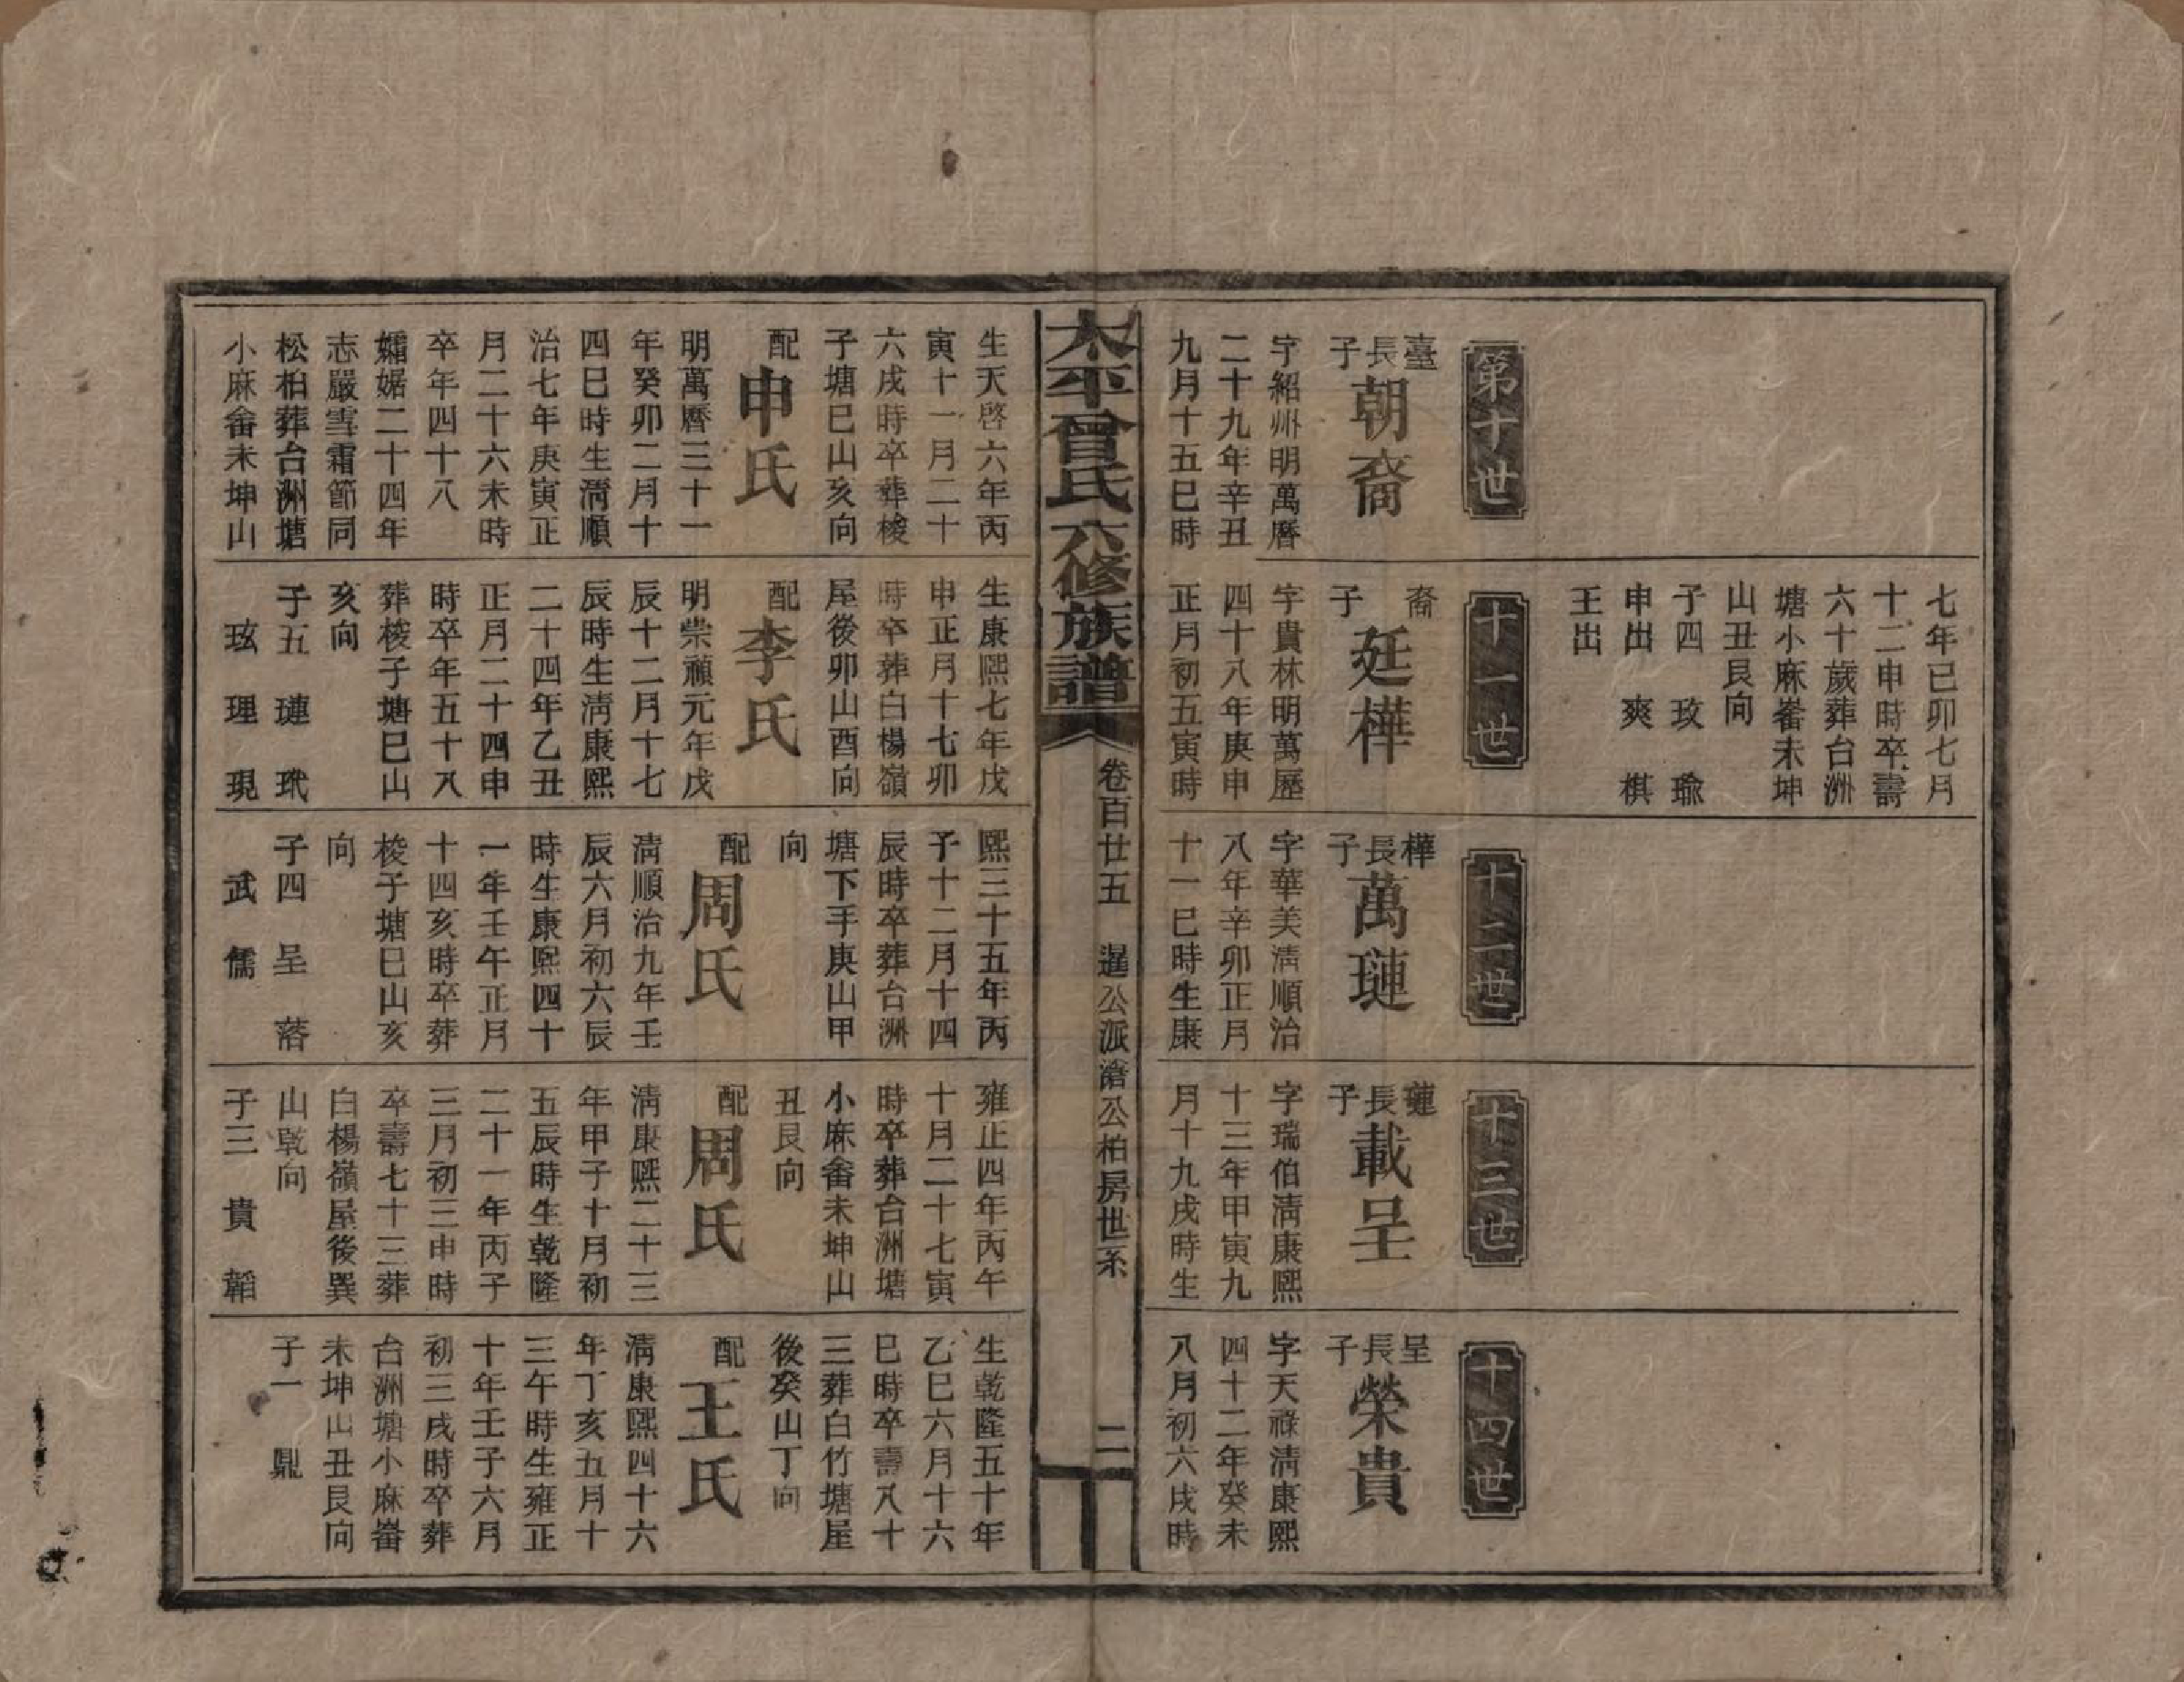 第十世
臺長子
朝裔
字紹州明萬曆
二十九年辛丑
九月十五巳時
七年己卯七月
十二申時卒壽
六十歲葬台洲
塘小麻畬未坤
山丑艮向
子四 玫 瑜
申出 爽 棋
王出
十一世
裔子
廷樺
字貴林明萬歷
四十八年庚申
正月初五寅時
十二世
樺長子
萬璉
字華美淸順治
八年辛卯正月
十一巳時生康
十三世
璉長子
載呈
字瑞伯淸康熙
十三年甲寅九
月十九戌時生
十四世
呈長子
榮貴
字天祿淸康熙
四十二年癸未
八月初六戌時
太平曾氏六修族譜
卷百廿五 暹公派滄公柏房世系
二
生天啓六年丙
寅十一月二十
六戌時卒葬梭
子塘巳山亥向
配
申氏
明萬曆三十一
年癸卯二月十
四巳時生淸順
治七年庚寅正
月二十六未時
卒年四十八
孀媰二十四年
志嚴雪霜節同
松柏葬台洲塘
小麻畬未坤山
生康熙七年戊
申正月十七卯
時卒葬白楊嶺
屋後卯山酉向
配
李氏
明崇禎元年戊
辰十二月十七
辰時生淸康熙
二十四年乙丑
正月二十四申
時卒年五十八
葬梭子塘巳山
亥向
子五 璉 玳
玹 理 現
熙三十五年丙
子十二月十四
辰時卒葬台洲
塘下手庚山甲
向
配
周氏
淸順治九年壬
辰六月初六辰
時生康熙四十
一年壬午正月
十四亥時卒葬
梭子塘巳山亥
向
子四 呈 蓉
武 儒
雍正四年丙午
十月二十七寅
時卒葬台洲塘
小麻畬未坤山
丑艮向
配
周氏
淸康熙二十三
年甲子十月初
五辰時生乾隆
二十一年丙子
三月初三申時
卒壽七十三葬
白楊嶺屋後巽
山乾向
子三 貴 韜
生乾隆五十年
乙巳六月十六
巳時卒壽八十
三葬白竹塘屋
後癸山丁向
配
王氏
淸康熙四十六
年丁亥五月十
三午時生雍正
十年壬子六月
初三戌時卒葬
台洲塘小麻畬
未坤山丑艮向
子一 鼎